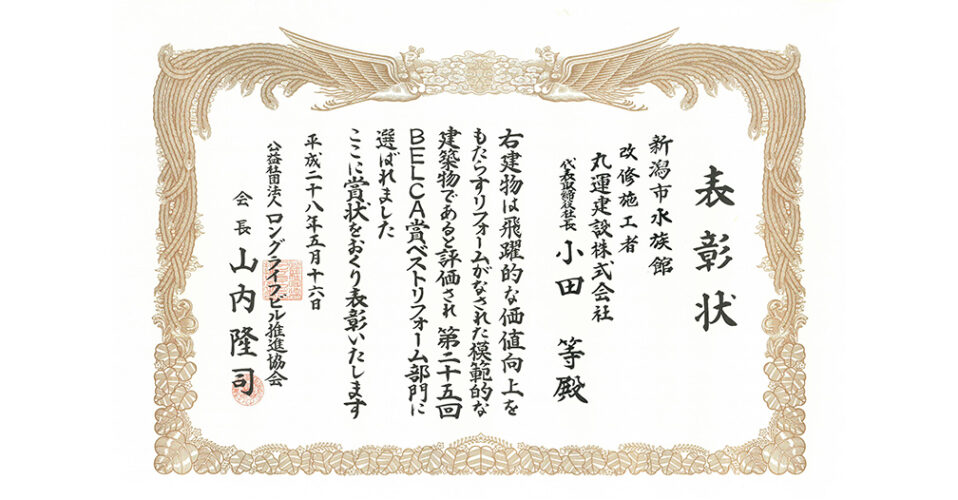 表彰状
新潟市水族館
改修施工者
丸運建設株式会社
代表取締役社長 小田 等殿
右建物は飛躍的な価値向上を
もたらすリフォームがなされた模範的な
建築物であると評価され 第二十五回
BELCA賞ベストリフォーム部門に
選ばれました
ここに賞状をおくり表彰いたします
平成二十八年五月十六日
公益社団法人 ロングライフビル推進協会
会長 山内隆司